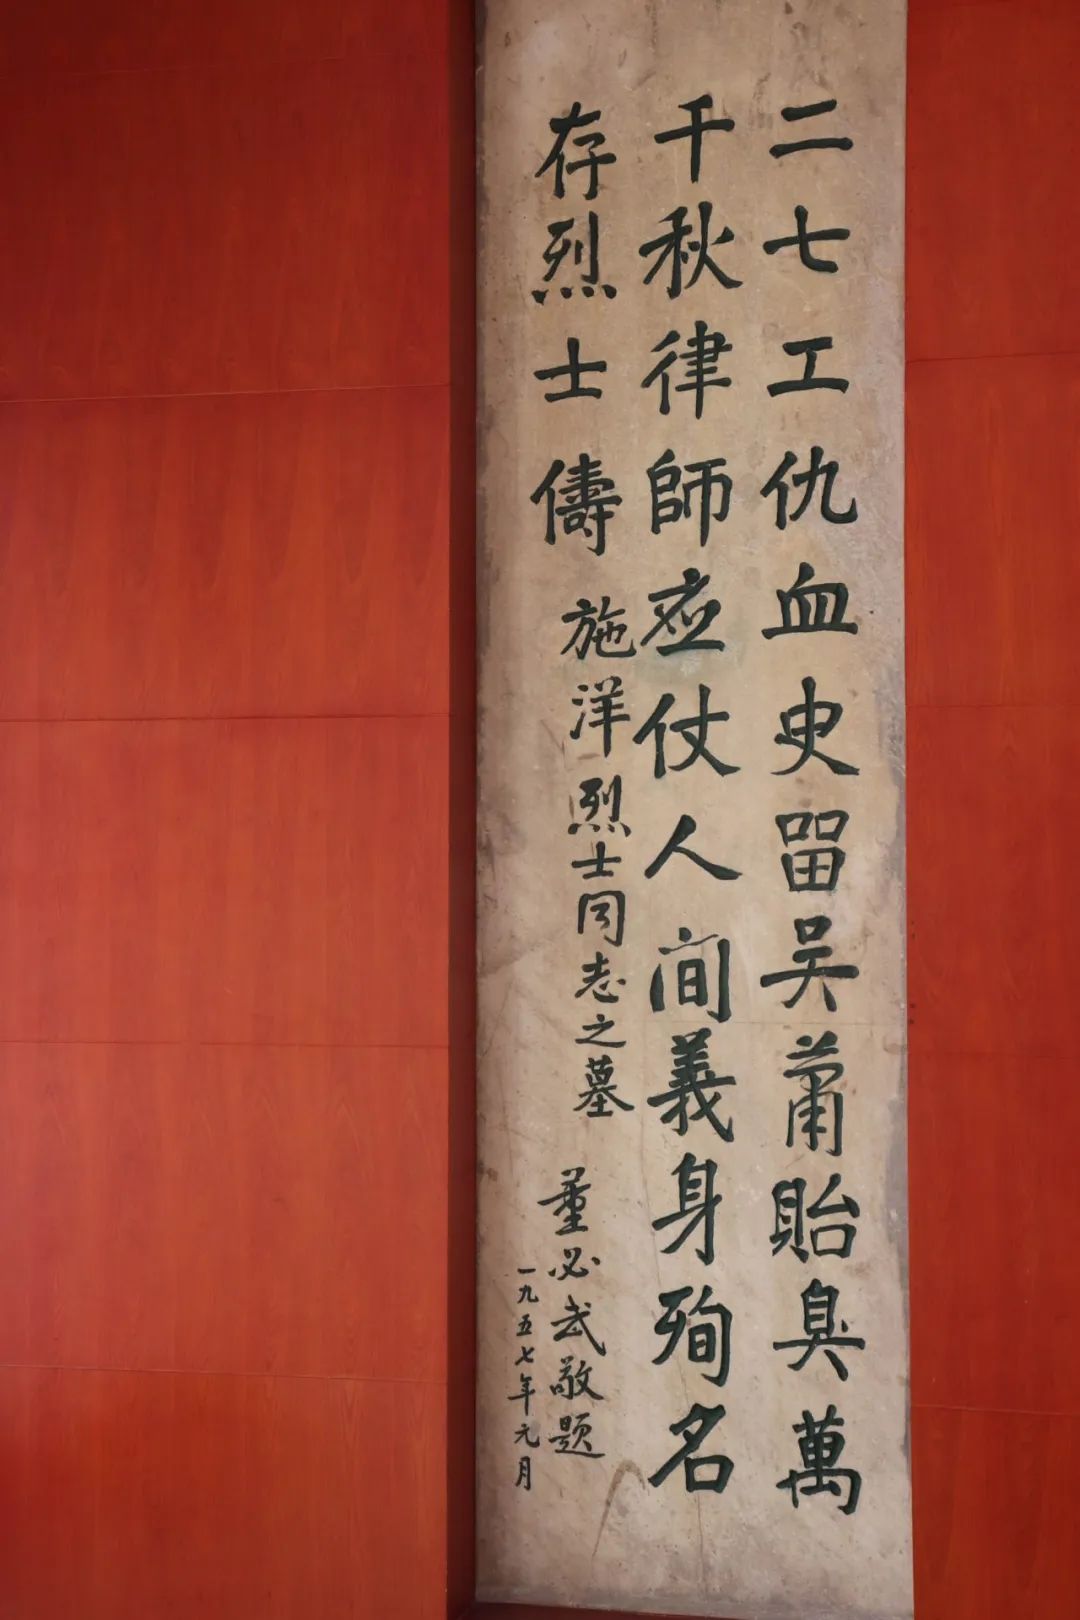 二七工仇血史畱吴萧貽臭萬
千秋律師应仗人间義身殉名
存烈士儔
施洋烈士同志之墓
董必武敬题
一九五七年元月